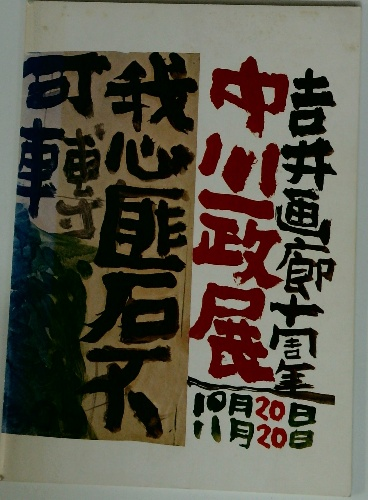 吉井画廊十周年
中川一政展
10月20日
11月20日
我心匪石不
可轉